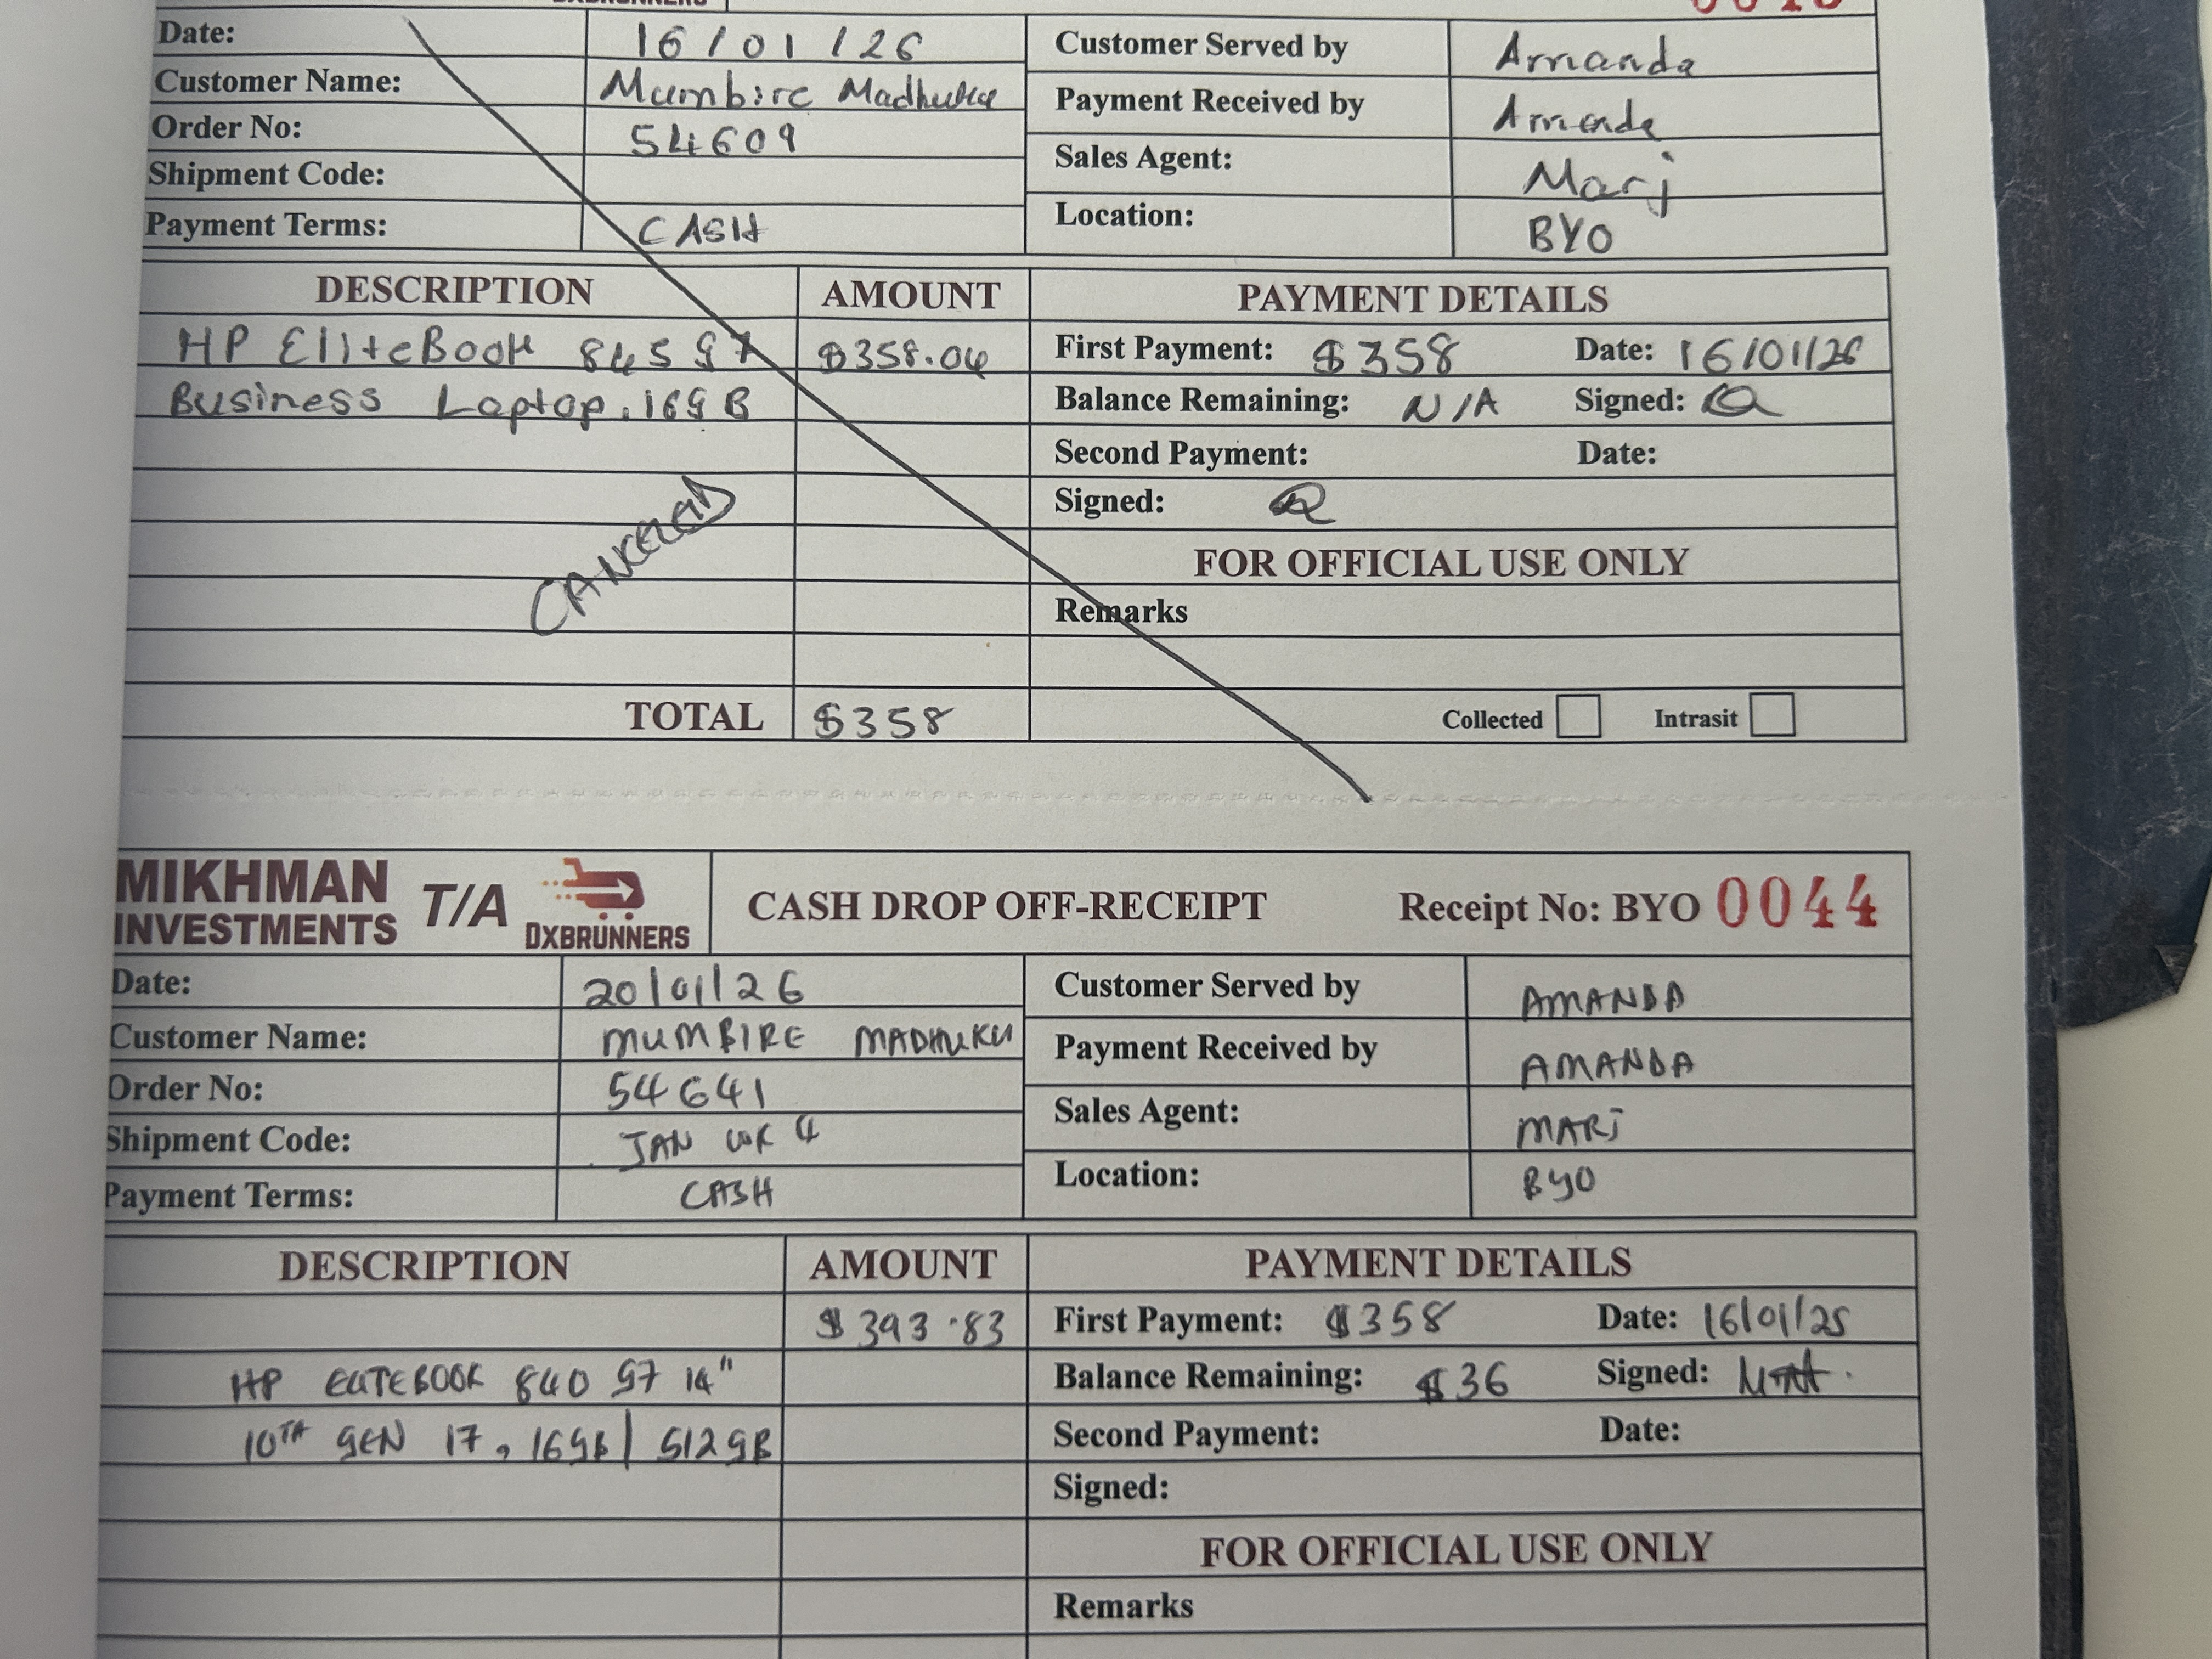 Date: 16/01/26 Customer Served by Amanda
Customer Name: Mumbire Madhuku Payment Received by Amanda
Order No: 54609 Sales Agent: Marj
Shipment Code:
Payment Terms: CASH Location: BYO
DESCRIPTION AMOUNT PAYMENT DETAILS
HP EliteBook 845 G7 $358.04 First Payment: $358 Date: 16/01/26
Business Laptop, 16GB Balance Remaining: N/A Signed:
Second Payment: Date:
Signed:
CANCELED
FOR OFFICIAL USE ONLY
Remarks
TOTAL $358 Collected Intrasit
MIKHMAN INVESTMENTS T/A DXBRUNNERS CASH DROP OFF-RECEIPT Receipt No: BYO 0044
Date: 20/01/26 Customer Served by AMANDA
Customer Name: MUMBIRE MADHUKU Payment Received by AMANDA
Order No: 54641 Sales Agent: MARJ
Shipment Code: JAN WK 4
Payment Terms: CASH Location: BYO
DESCRIPTION AMOUNT PAYMENT DETAILS
$393.83 First Payment: $358 Date: 16/01/25
HP ELITEBOOK 840 G7 14" Balance Remaining: $36 Signed:
10TH GEN i7, 16GB| 512GB Second Payment: Date:
Signed:
FOR OFFICIAL USE ONLY
Remarks